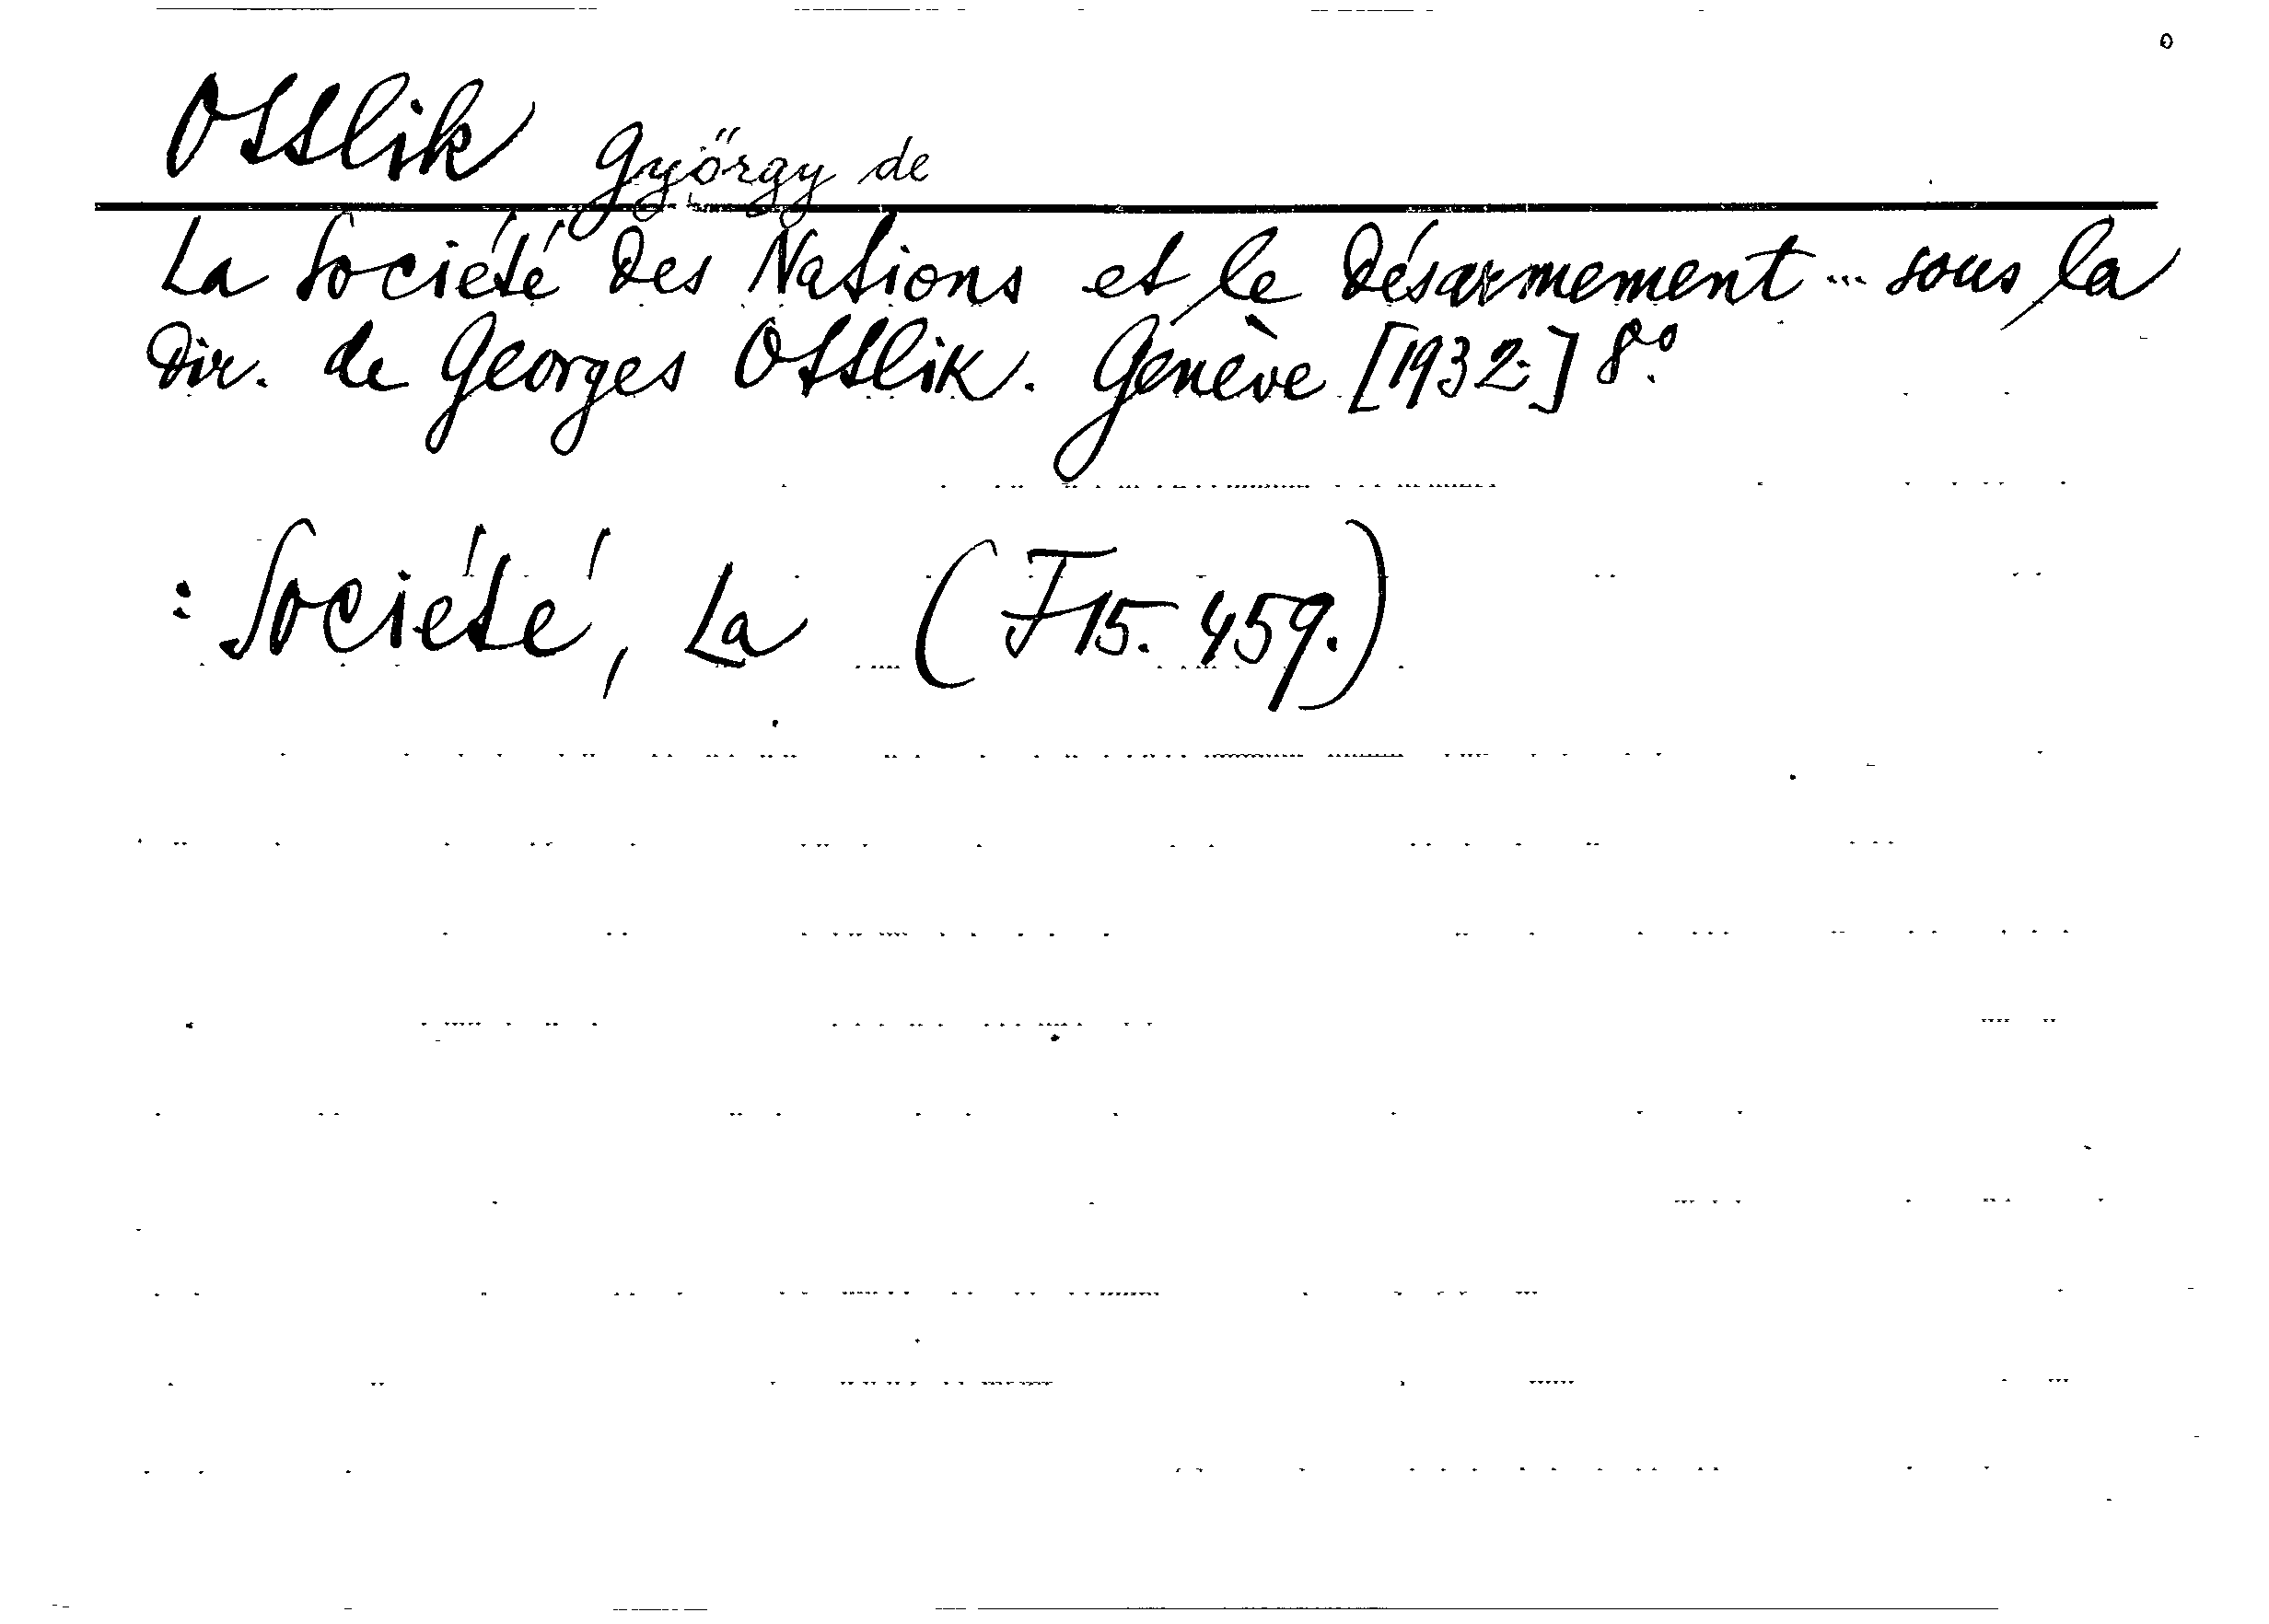 Ottlik György de
La Société des Nations et le désarmement ... sous la
dir. de Georges Ottlik. Genève [1932.] 8°.
: Société, La (F15.459.)